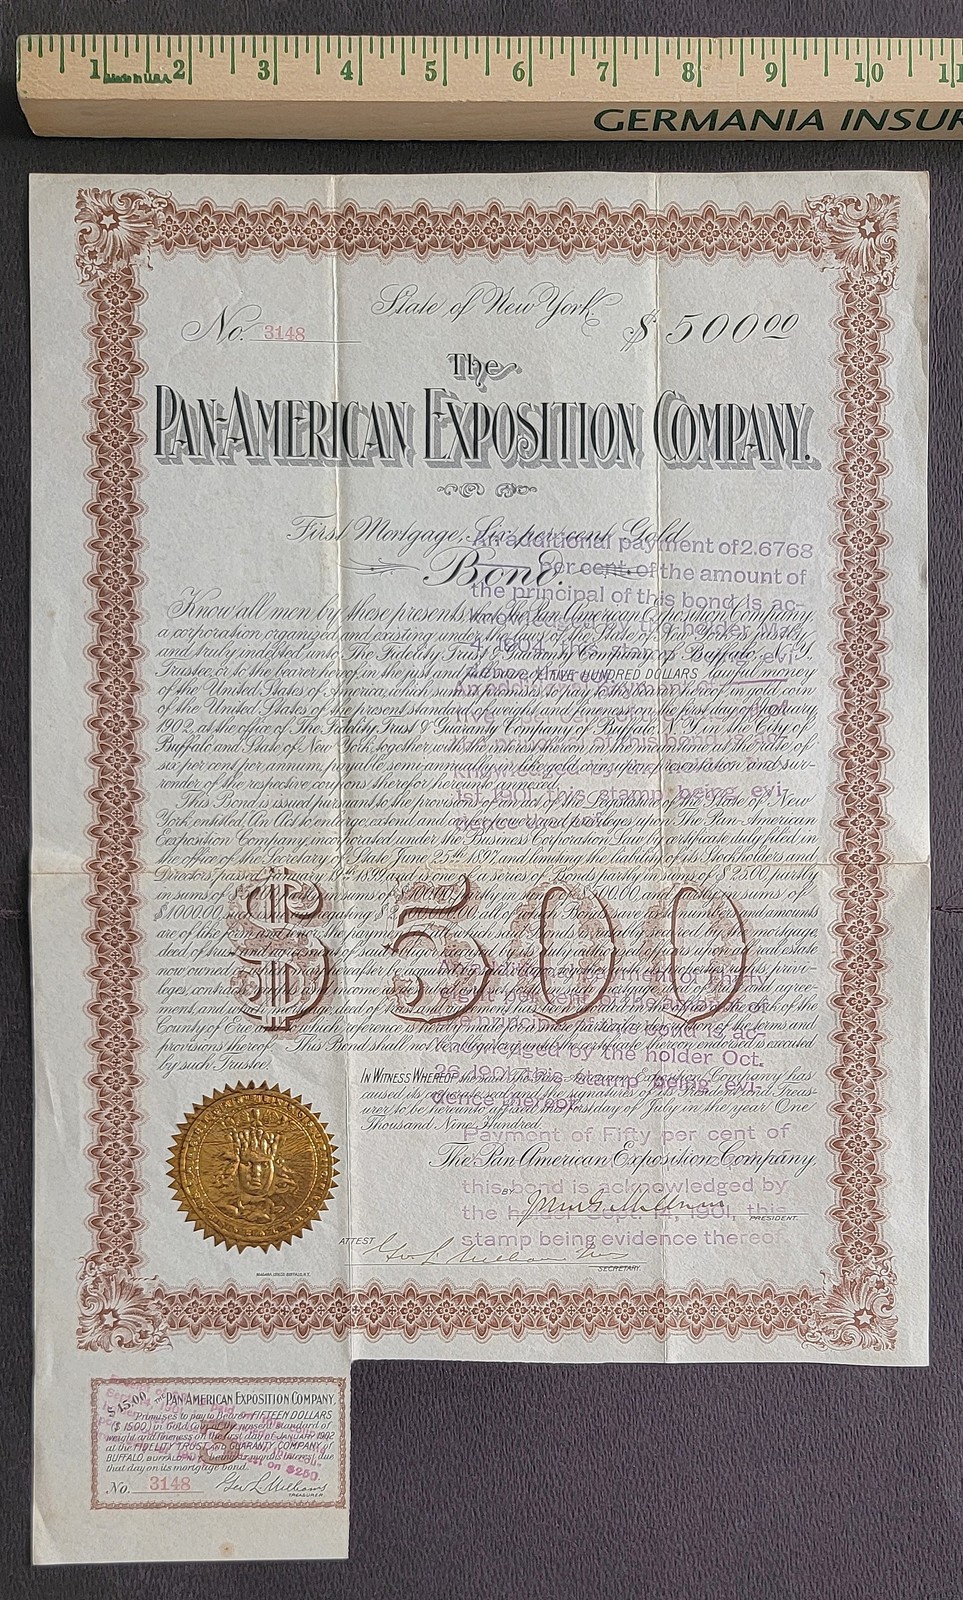 1 Made in U.S.A. 2 3 4 5 6 7 8 9 10 11
GERMANIA INSUR
State of New York
No. 3148
$500 00
The
PAN-AMERICAN EXPOSITION COMPANY.
First Mortgage, Six per cent Gold
Bond.
An additional payment of 2.6768
per cent. of the amount of
the principal of this bond is ac-
Know all men by these presents, that The Pan American Exposition Company,
a corporation organized and existing under the laws of the State of New York, justly
and truly indebted unto The Fidelity Trust & Guaranty Company of Buffalo, N.Y.,
Trustee, or to the bearer hereof, in the just and full sum of FIVE HUNDRED DOLLARS lawful money
of the United States of America, which sum it promises to pay to the bearer hereof, in gold coin
of the United States of the present standard of weight and fineness on the first day of January,
1902, at the office of The Fidelity Trust & Guaranty Company of Buffalo, N.Y. in the City of
Buffalo and State of New York, together with the interest thereon in the meantime at the rate of
six per cent per annum, payable semi-annually in like gold coin, upon presentation and sur-
render of the respective coupons therefor hereunto annexed.
1st, 1901, this stamp being evi-
dence thereof.
This Bond is issued pursuant to the provisions of an act of the Legislature of the State of New
York, entitled, "An Act to enlarge, extend, and confer powers and privileges upon The Pan-American
Exposition Company, incorporated under the Business Corporation Law by certificate duly filed in
the office of the Secretary of State June 25th 1897, and limiting the liability of its Stockholders and
Directors, passed January 19th 1899, and is one of a series of Bonds partly in sums of $25.00, partly
in sums of partly in sums of $100.00, partly in sums of $500.00, and partly in sums of
$1000.00, all of which Bonds save in the numbers and amounts
are of like form and tenor, the payment of all which said Bonds is equally secured by the mortgage,
deed of trust and agreement of said obligor executed by its duly authorized officers upon the real estate
County of Erie, to which reference is hereby made for a more particular description of the terms and
provisions thereof. This Bond shall not be obligatory until the certificate thereon endorsed is executed
by such Trustee.
$500
eight per cent of the amount of
the principal of this bond is ac-
knowledged by the holder Oct.
26, 1901, this stamp being evi-
dence thereof.
IN WITNESS WHEREOF the said The Pan American Exposition Company has
caused its corporate seal and the signatures of its President and Treas-
urer to be hereunto affixed the first day of July in the year One
Thousand Nine Hundred.
Payment of Fifty per cent of
The Pan American Exposition Company,
this bond is acknowledged by
BY
PRESIDENT.
the holder Sept. 14, 1901, this
stamp being evidence thereof.
ATTEST
SECRETARY.
$15.00 THE PAN AMERICAN EXPOSITION COMPANY,
Promises to pay to Bearer FIFTEEN DOLLARS
($15.00) in Gold Coin of the present standard of
weight and fineness on the first day of JANUARY 1902
at the FIDELITY TRUST AND GUARANTY COMPANY of
BUFFALO, BUFFALO N.Y. being six months interest due
that day on its mortgage bond.
on $250.
No. 3148 Geo. L. Williams
TREASURER.